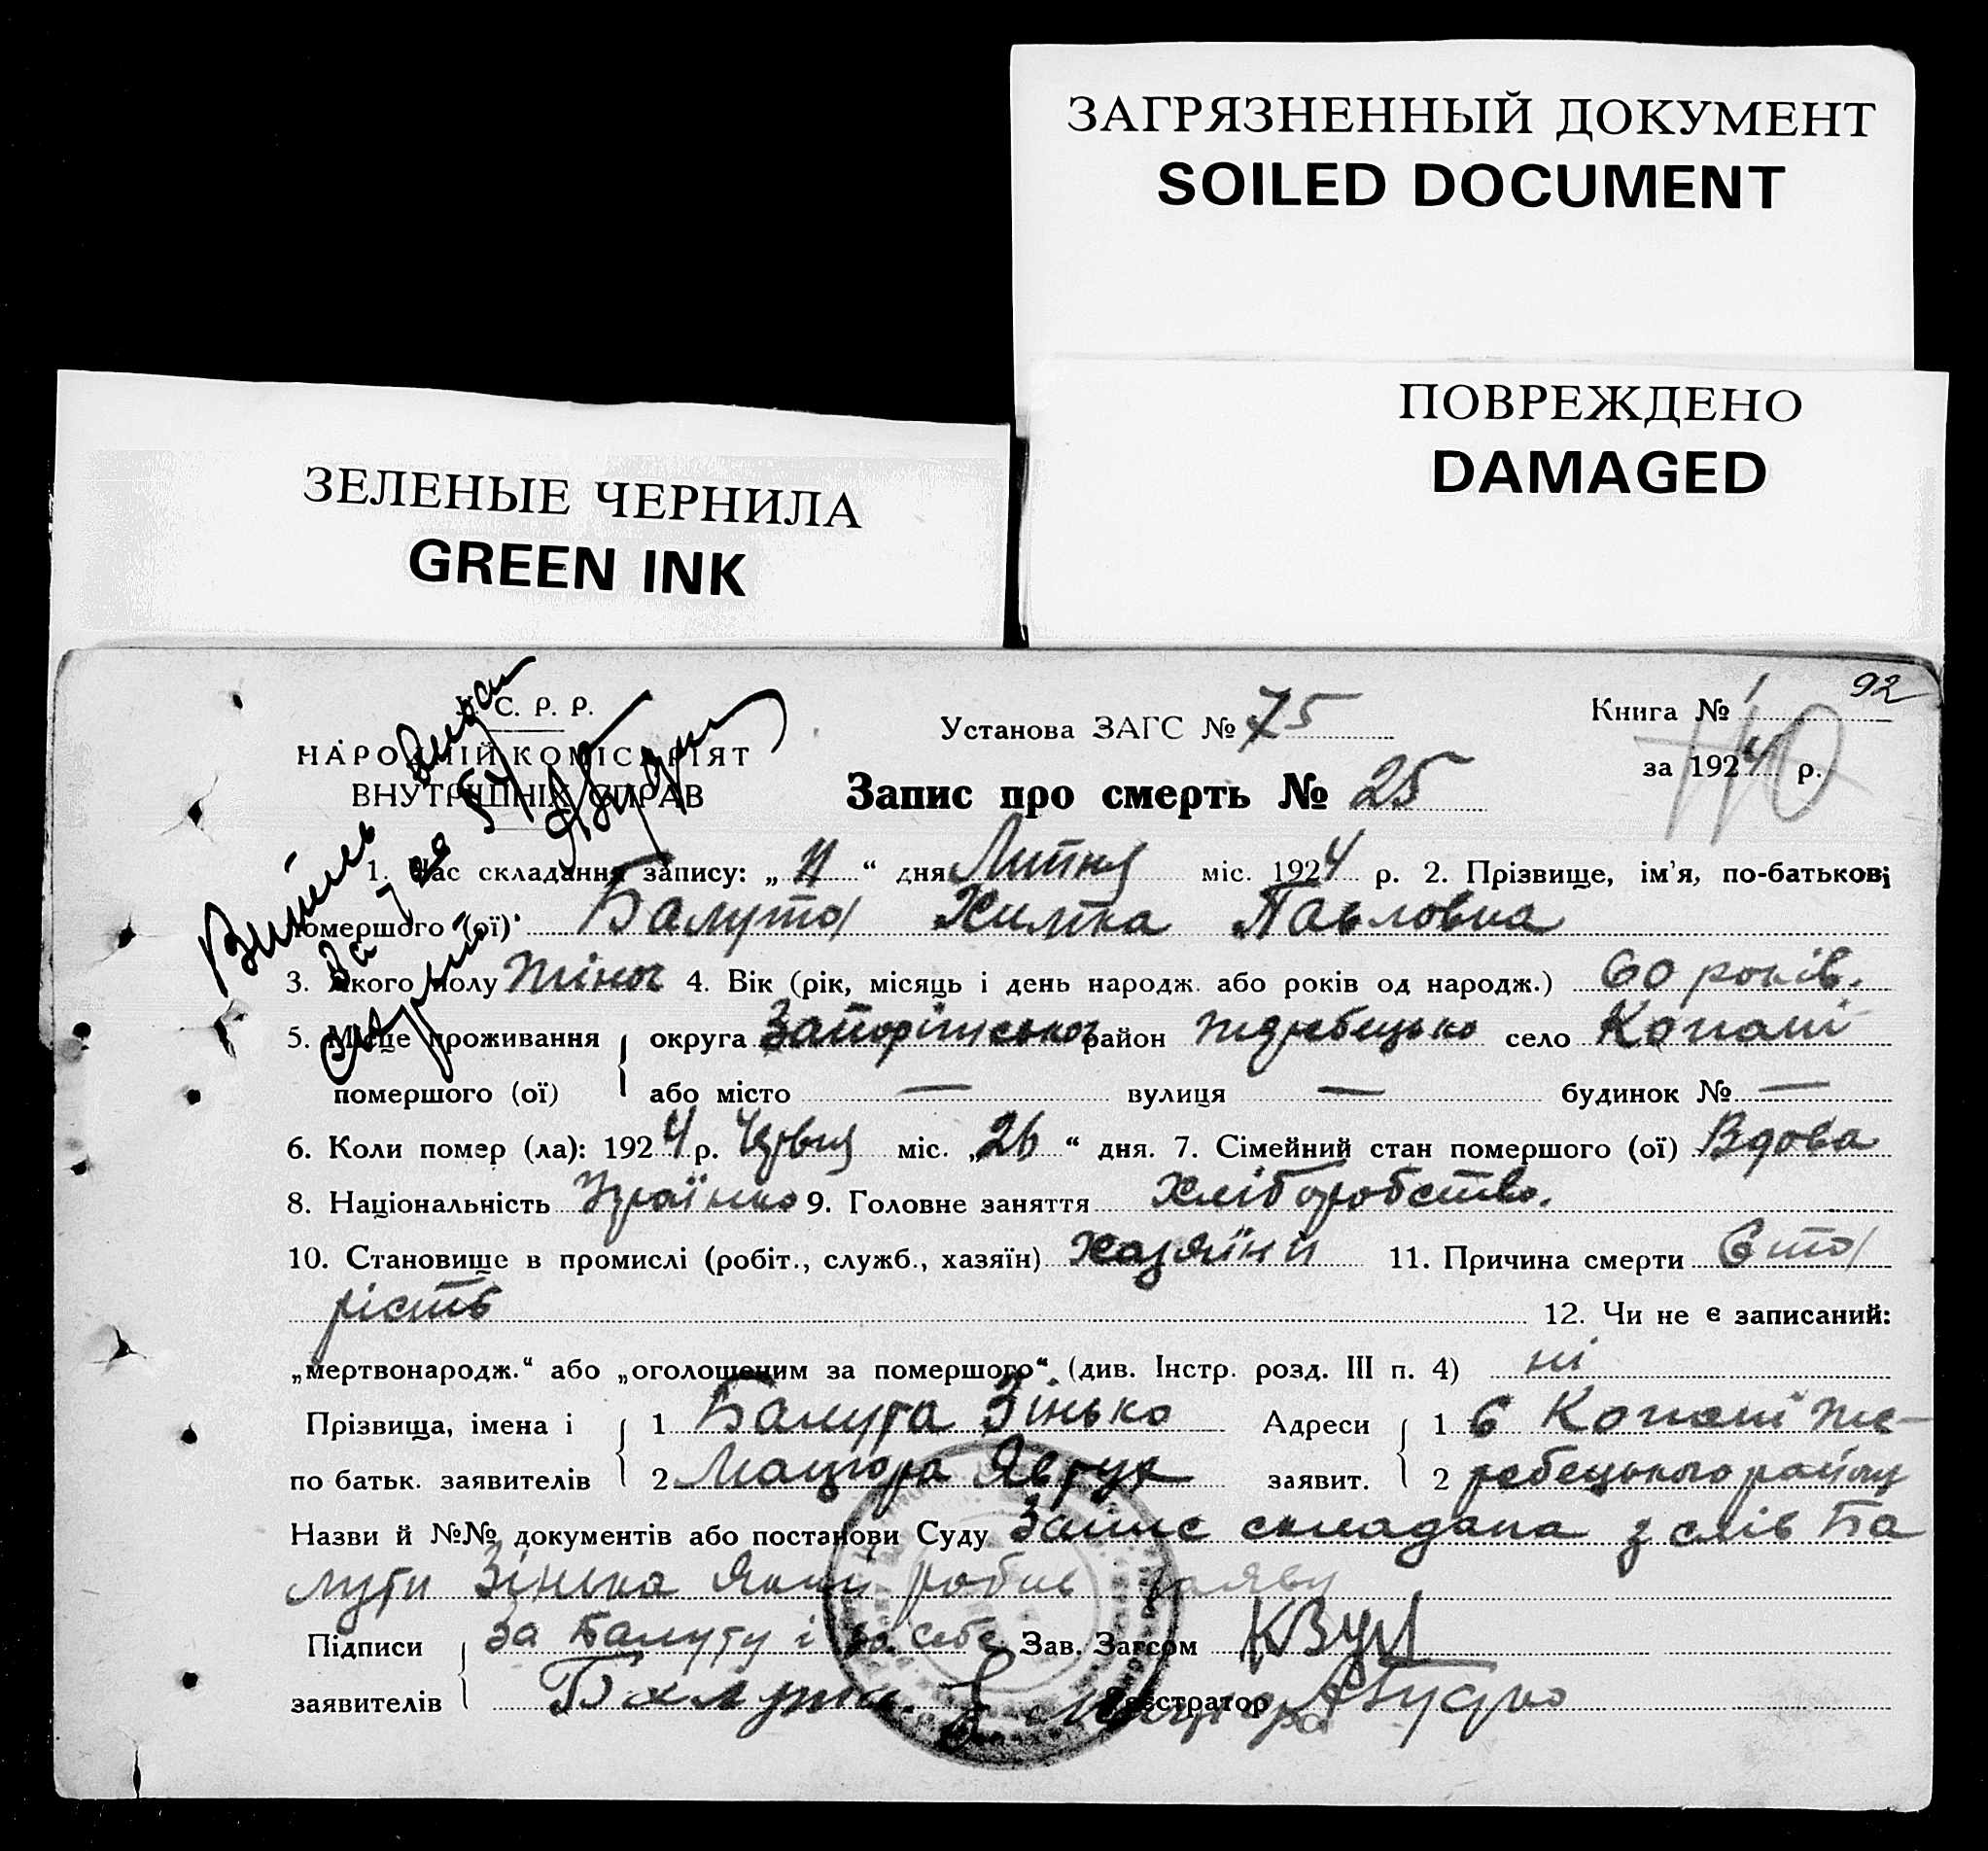 ЗАГРЯЗНЕННЫЙ ДОКУМЕНТ
SOILED DOCUMENT
ПОВРЕЖДЕНО
DAMAGED
ЗЕЛЕНЫЕ ЧЕРНИЛА
GREEN INK
92
У. С. Р. Р.
НАРОДНІЙ КОМІСАРІЯТ
ВНУТРІШНІХ СПРАВ
Установа ЗАГС № 75
Книга № 1
за 1924 р.
110
Запис про смерть № 25
1. Час складання запису: „11“ дня Липня міс. 1924 р. 2. Прізвище, ім'я, по-батькові
помершого (ої) Балута Химка Павловна
3. Якого полу жіноч 4. Вік (рік, місяць і день народж. або років од народж.) 60 років.
5. Місце проживання округа Запоріжська район Жеребецько село Копані
помершого (ої) або місто — вулиця — будинок № —
6. Коли помер (ла): 1924 р. Червня міс. „26“ дня. 7. Сімейний стан помершого (ої) Вдова
8. Національність Українка 9. Головне заняття Хліборобство.
10. Становище в промислі (робіт., служб., хазяїн) Хазяїни 11. Причина смерти Ста
рість 12. Чи не є записаний:
„мертвонародж.“ або „оголошеним за помершого“ (див. Інстр. розд. III п. 4) ні
Прізвища, імена і 1 Балута Зінько Адреси 1 С Копані Же-
по батьк. заявителів 2 Мацюра Явтух заявит. 2 ребецького району
Назви й №№ документів або постанови Суду Запис складана з слів Ба
лути Зінька Який робив заяву
Підписи За Балуту і за себе Зав. Загсом
заявителів Балута. Мацюра Реєстратор